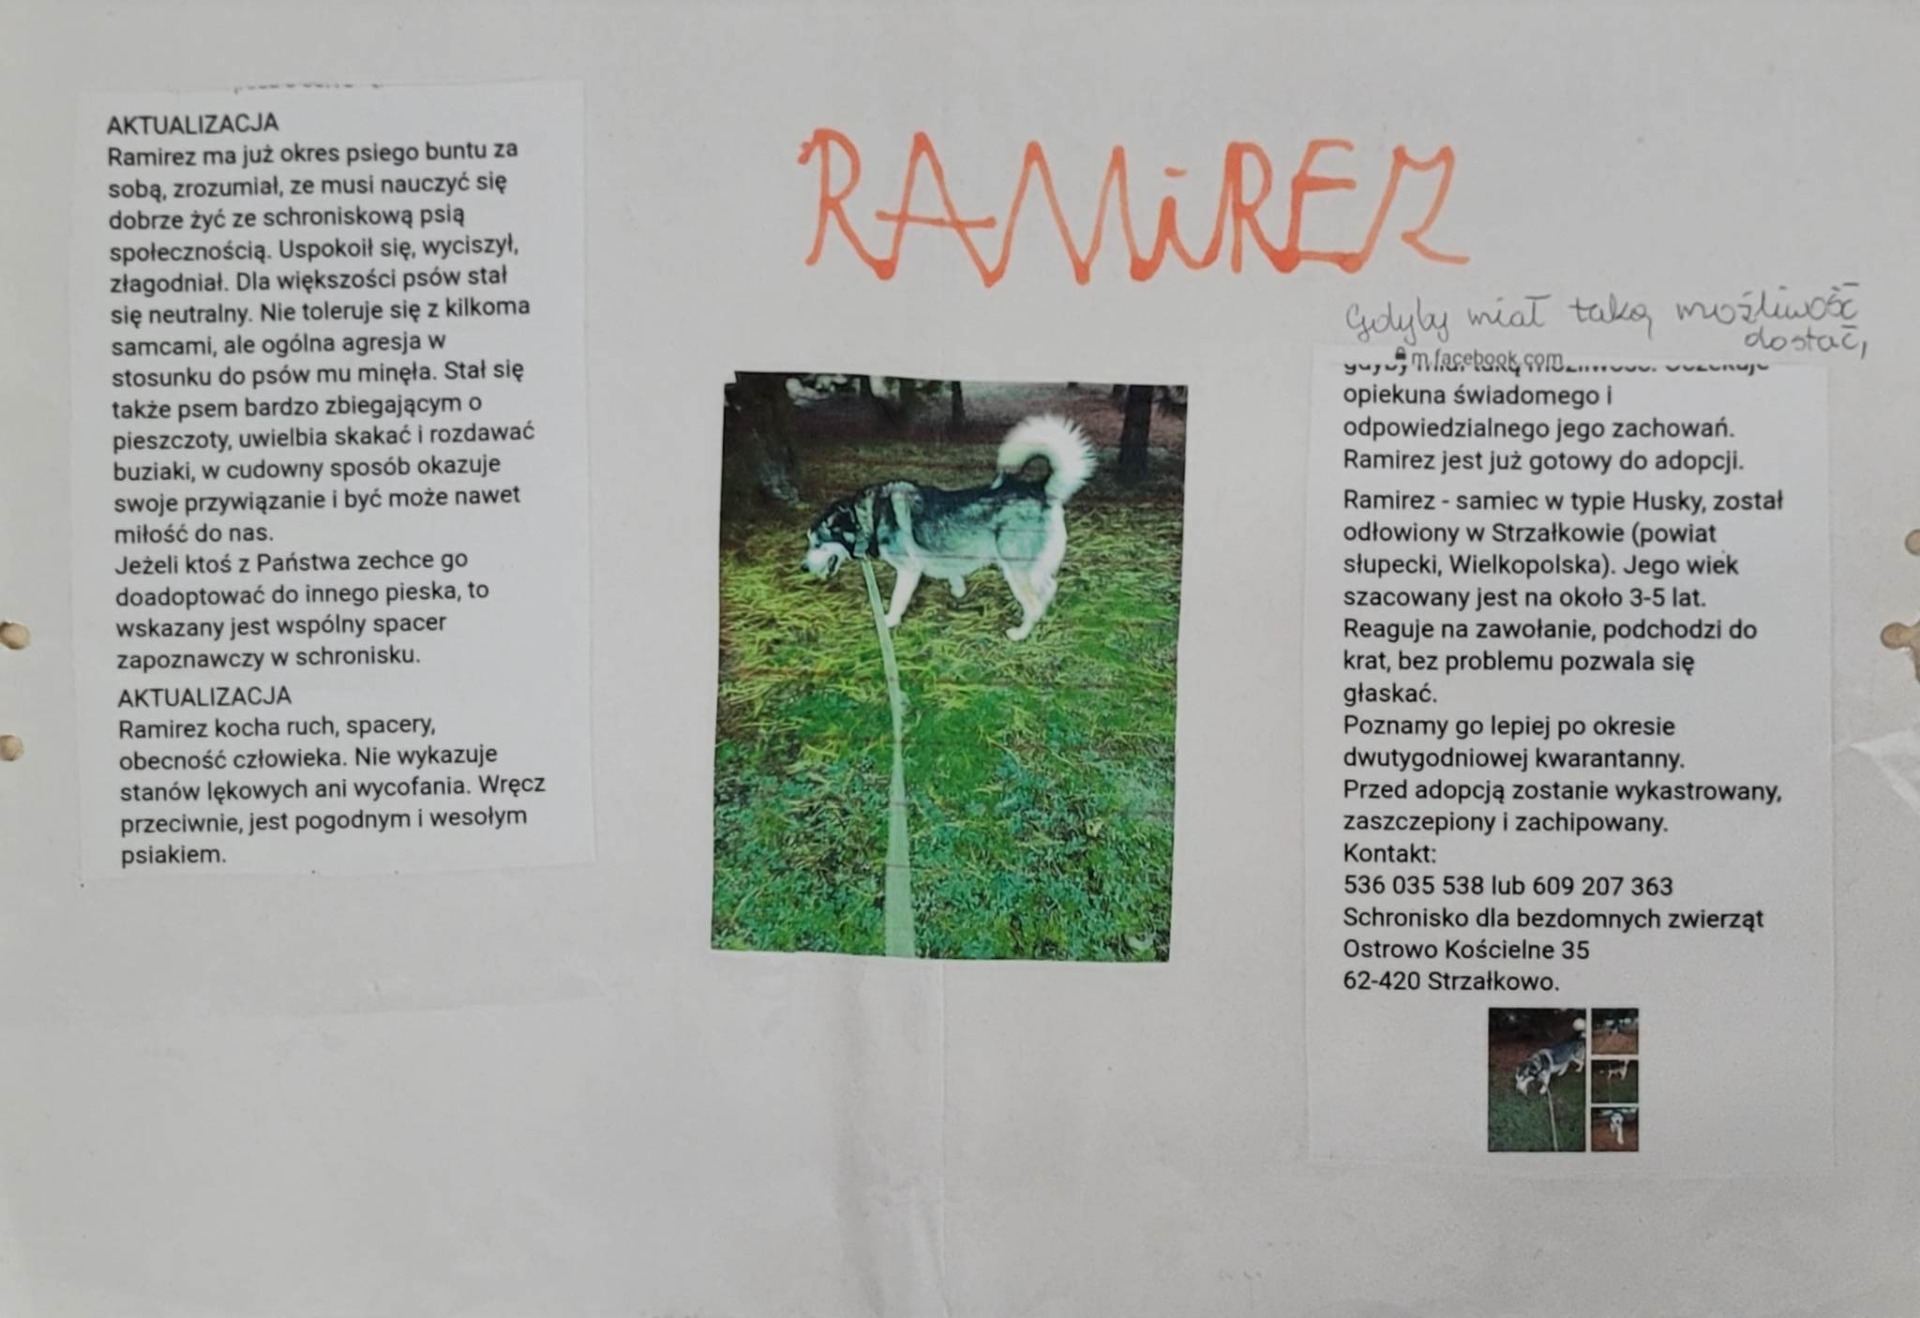 AKTUALIZACJA
Ramirez ma już okres psiego buntu za
sobą, zrozumiał, ze musi nauczyć się
dobrze żyć ze schroniskową psią
społecznością. Uspokoił się, wyciszył,
złagodniał. Dla większości psów stał
się neutralny. Nie toleruje się z kilkoma
samcami, ale ogólna agresja w
stosunku do psów mu minęła. Stał się
także psem bardzo zbiegającym o
pieszczoty, uwielbia skakać i rozdawać
buziaki, w cudowny sposób okazuje
swoje przywiązanie i być może nawet
miłość do nas.
Jeżeli ktoś z Państwa zechce go
doadoptować do innego pieska, to
wskazany jest wspólny spacer
zapoznawczy w schronisku.
AKTUALIZACJA
Ramirez kocha ruch, spacery,
obecność człowieka. Nie wykazuje
stanów lękowych ani wycofania. Wręcz
przeciwnie, jest pogodnym i wesołym
psiakiem.
RAMiREZ
Gdyby miał taką możliwość
dostać,
m.facebook.com
opiekuna świadomego i
odpowiedzialnego jego zachowań.
Ramirez jest już gotowy do adopcji.
Ramirez - samiec w typie Husky, został
odłowiony w Strzałkowie (powiat
słupecki, Wielkopolska). Jego wiek
szacowany jest na około 3-5 lat.
Reaguje na zawołanie, podchodzi do
krat, bez problemu pozwala się
głaskać.
Poznamy go lepiej po okresie
dwutygodniowej kwarantanny.
Przed adopcją zostanie wykastrowany,
zaszczepiony i zachipowany.
Kontakt:
536 035 538 lub 609 207 363
Schronisko dla bezdomnych zwierząt
Ostrowo Kościelne 35
62-420 Strzałkowo.